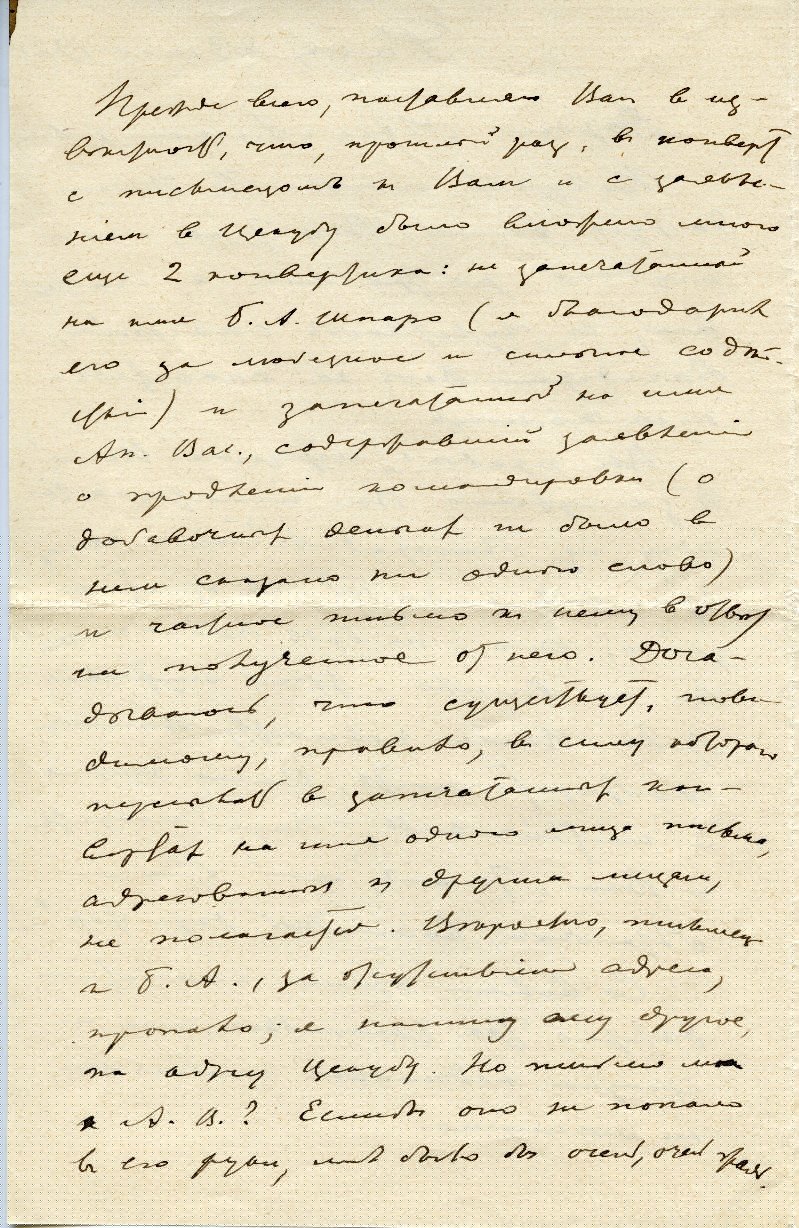 Прежде всего, поставляю Вас в из-
вѣстность, что, прошлый раз, в конверт
с письмецомъ к Вам и с заявле-
нием в Цекубу было вложено много
еще 2 конвертика: не запечатанный
на имя Б. А. Шпаро (я благодарил
его за любезное и сильное содѣ-
йствiе) и запечатанный на имя
Ан. Вас., содержавший заявленiе
о продленiи командировки (о
добавочных деньгах не было в
нем сказано ни одного слова)
и частное письмо к нему в отвѣт
на полученное от него. Дога-
дываюсь, что существует, пови-
димому, правило, в силу которого
пересылать в запечатанных кон-
вертах на имя одного лица письма,
адресованныя к другим лицам,
не полагается. Вѣроятно, письмецо
к Б. А., за отсутствiем адреса,
пропало; я напишу ему другое,
на адрес Цекубу. Но письмо мое
к А. В.? Еслибы оно не попало
в его руки, мнѣ было бы очень, очень жаль.